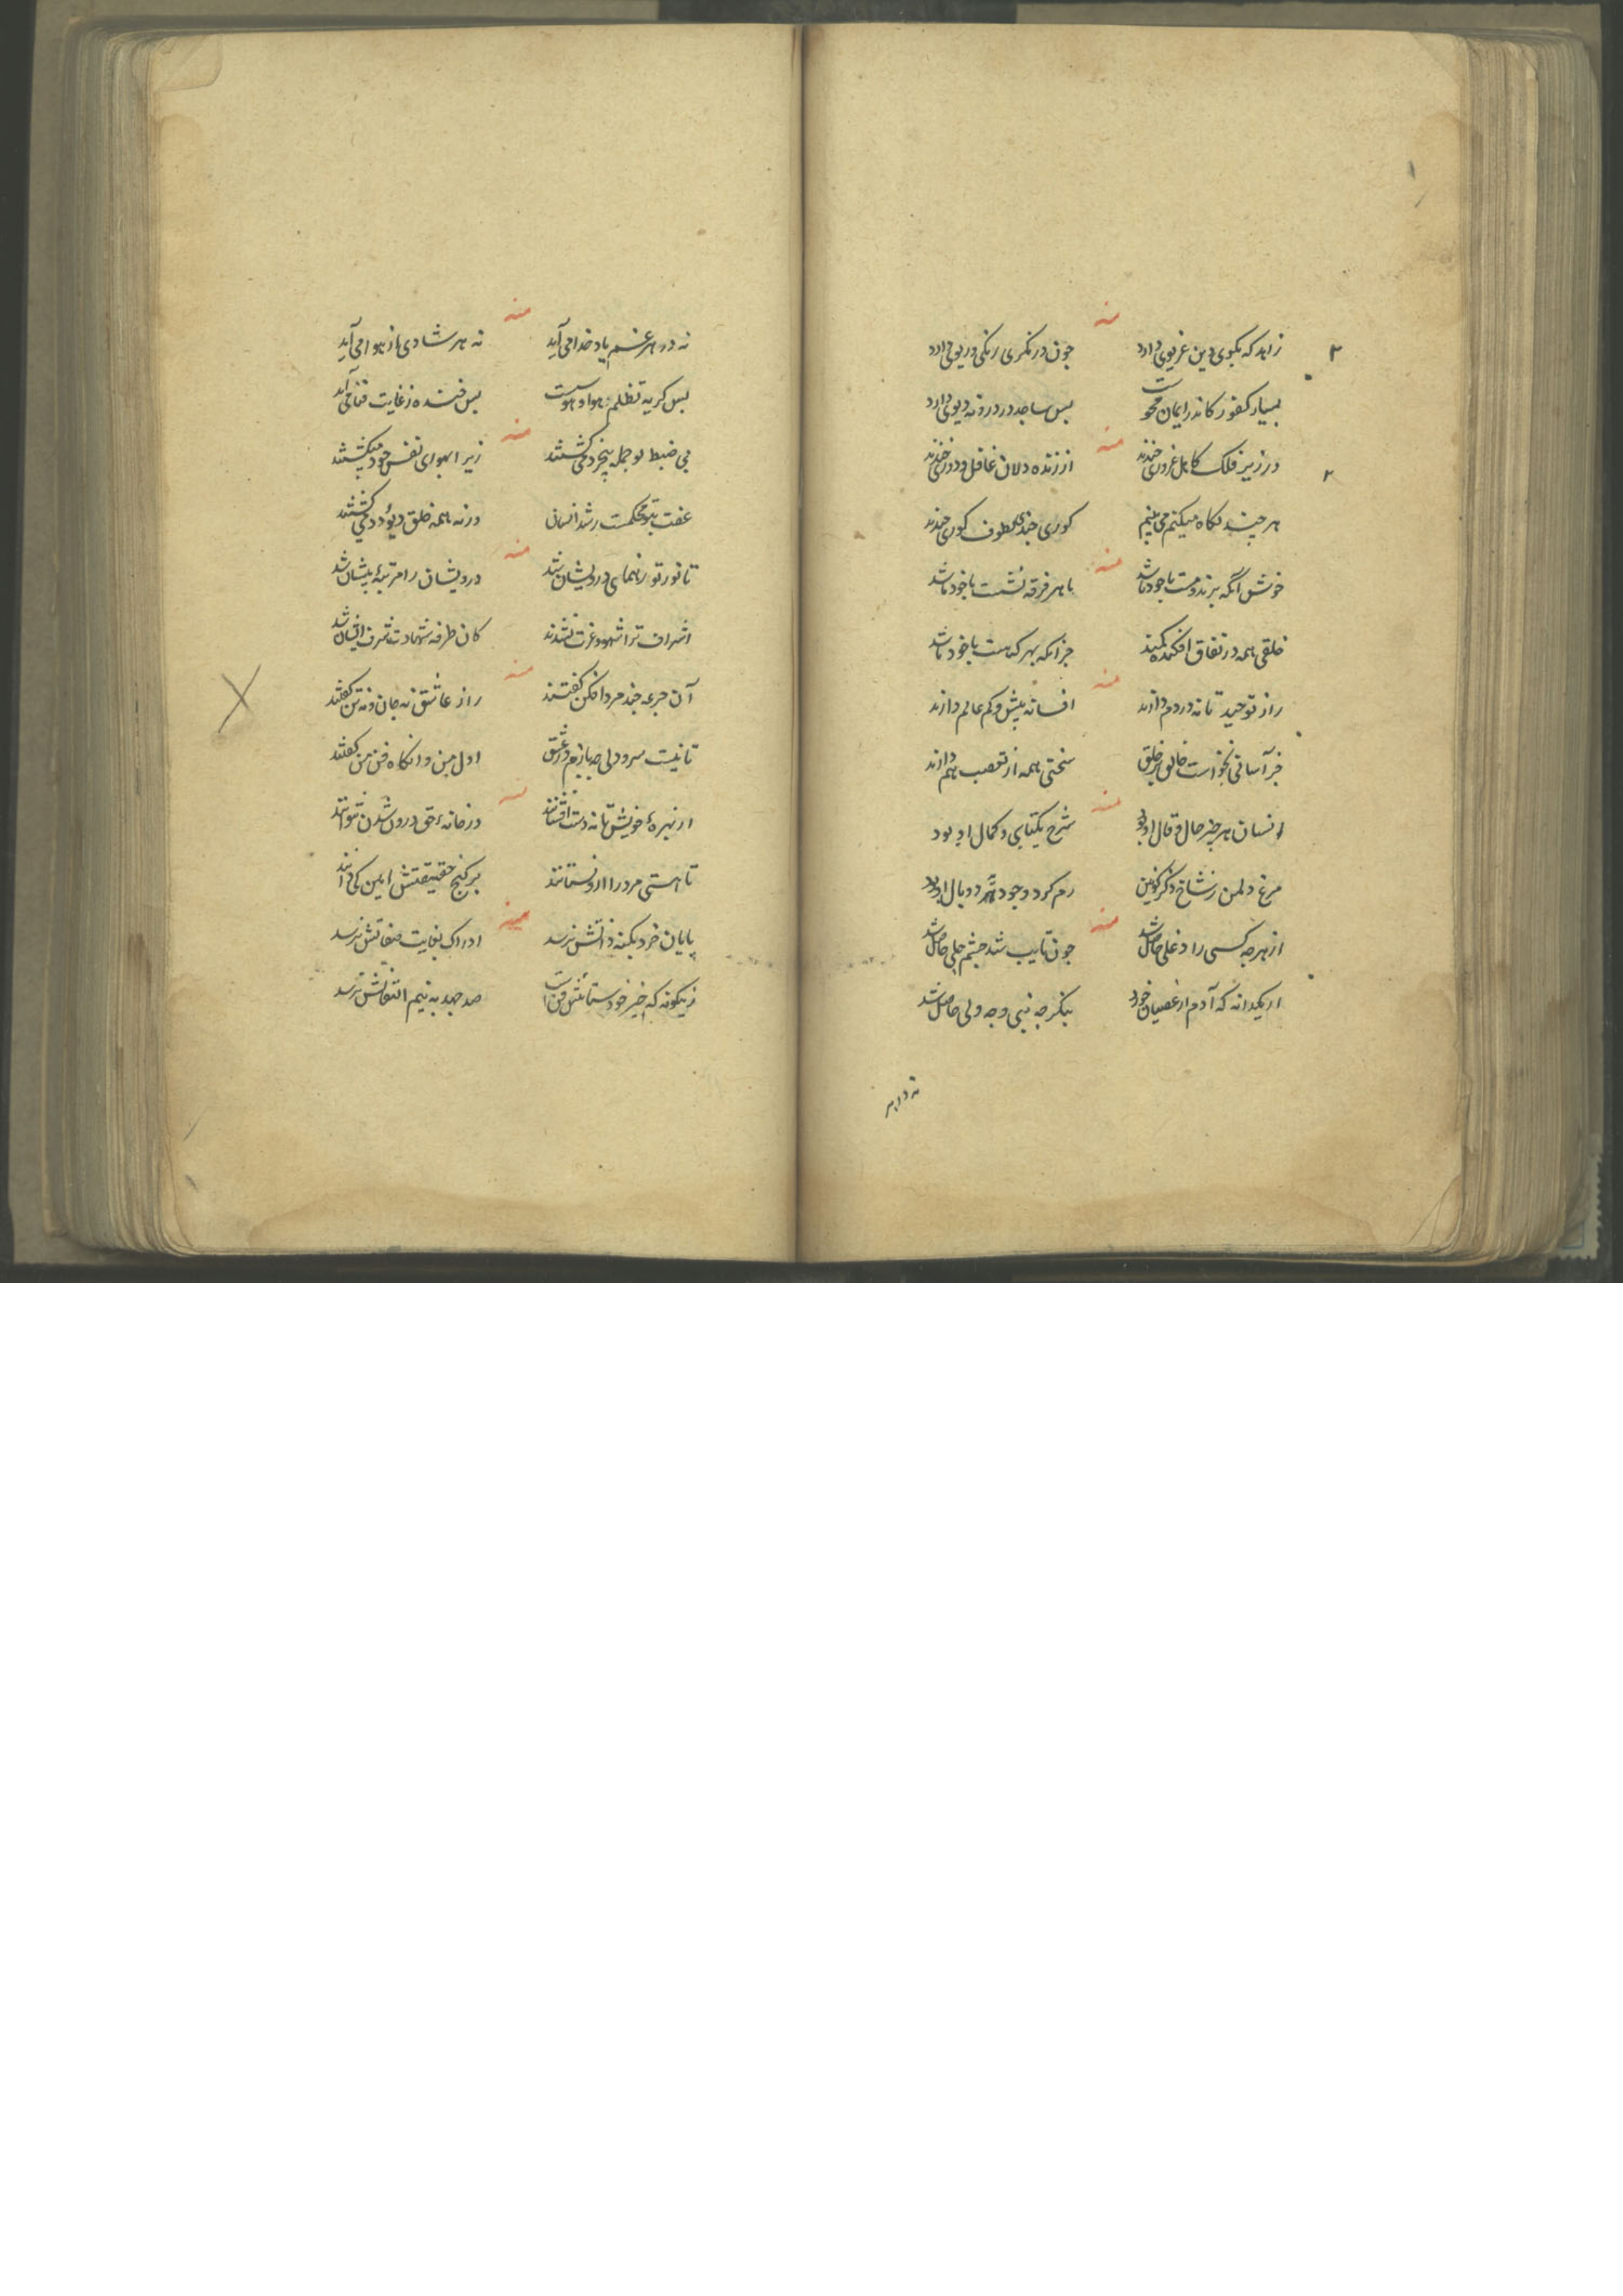 منه
زاهد که بکوی دین غریوی دارد جون درنکری رنکی و ریوی دارد
بسیار کفور کاندر ایمان محوست بس ساجد در درونه دیوی دارد
منه
در زیر فلک کاهل غروری خندند از زنده دلان غافل و دوری خندند
هر چند نکاه میکنم می بینم کوری چندی بطوف کوری خندند
منه
خوش آنکه برند و مست باخود باشد با هر فرقه نشست باخود باشد
خلقی همه در نفاق افکنده کمند جز آنکه بهر که هست باخود باشد
منه
راز توحید تا نه در دم دارند افسانه بیش و کم عالم دارند
جز آسانی نخواست خالق بر خلق سختی همه از تعصب هم دارند
منه
انسان هر چیز حال و قال او بود شرح یکتایی و کمال او بود
مرغ دلمن ز شاخ ذکر کونین رم کرد وجود دو بال او بود
منه
از هر چه کسی را دغلی حاصل شد جون تایب شد چشم جلی حاصل شد
از یکدانه که آدم از عصیان خورد بنکر چه نبی و چه ولی حاصل شد
نه در هر
منه
نه در هر غم یاد خدا می آید نه هر شادی از هوا می آید
بس کریه تظلم هوا و هوست بس خنده ز غایت فنا می آید
منه
بی ضبط تو جمله بیخرد می کشتند زیرا بهوای نفس خود میکشتند
عفت بتو محکمست رشد انسان ورنه همه خلق دیو و دد می کشتند
منه
تا نور تو رهنمای درویشان شد درویشان را مرتبه بیشان شد
اشراف ترا شهود عزت نشدند کان طرفه شهادت شرف ایشان شد
منه
آن جرعه چند مردافکن کفتند راز عاشق نه جان و نه تن کفتند
تا نیست سرودلی مبازیم در عشق اول من و انکاه فن من کفتند
منه
از بهره خویش تا نه دست افشانند در خانه حق درون شدن نتوانند
تا هستی مرد را ازو نستانند بر کنج حقیقتش امین کی دانند
منه
پایان خرد بکنه ذاتش نرسد ادراک بغایت صفاتش نرسد
زینکونه که خیر خود ستائش فن است صد جهد به نیم التفاتش نرسد